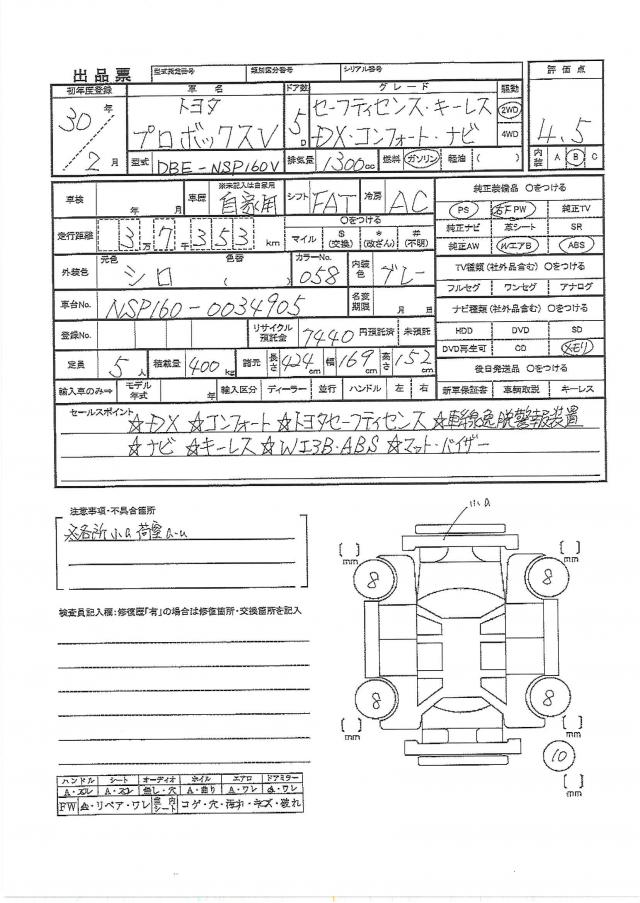 出品票 型式指定番号 類別区分番号 シリアル番号
初年度登録 車名 ドア数 グレード 駆動 評価点
30年 トヨタ 5D セーフティセンス・キーレス 2WD 4.5
2月 プロボックスV DX・コンフォート・ナビ 4WD
型式 DBE-NSP160V 排気量 1300cc 燃料 ガソリン・軽油( ) 内装 A B C
車検 年 月 車歴 ※未記入は自家用 自家用 シフト FAT 冷房 AC 純正装備品 〇をつける
走行距離 3万7千353km 〇をつける PS PW 純正TV
マイル S(交換) *(改ざん) #(不明) 純正ナビ 革シート SR
外装色 元色 シロ 色替( ) カラーNo. 058 内装色 グレー 純正AW WエアB ABS
TV種類(社外品含む)〇をつける
フルセグ ワンセグ アナログ
車台No. NSP160-0034905 名変期限 月 日 ナビ種類(社外品含む)〇をつける
登録No. リサイクル預託金 7440円預託済 未預託 HDD DVD SD
DVD再生可 CD メモリ
定員 5人 積載量 400kg 諸元 長さ 424cm 幅 169cm 高さ 152cm 後日発送品 〇をつける
輸入車のみ⇒ モデル年式 年 輸入区分 ディーラー・並行 ハンドル 左・右 新車保証書 車輌取説 キーレス
セールスポイント ☆DX ☆コンフォート ☆トヨタセーフティセンス ☆車線逸脱警報装置
☆ナビ ☆キーレス ☆WエアB・ABS ☆マット・バイザー
注意事項・不具合箇所
各所小a 荷室a-u
小a
[ ] mm [ ] mm
8 8
検査員記入欄:修復歴「有」の場合は修復箇所・交換箇所を記入
8 8
[ ] mm [ ] mm
10
[ ] mm
ハンドル シート オーディオ ホイル エアロ ドアミラー
A・スレ A・スレ 無し・穴 A・曲り A・ワレ A・ワレ
FW A・リペア・ワレ 室内シート コゲ・穴・汚れ・キズ・破れ